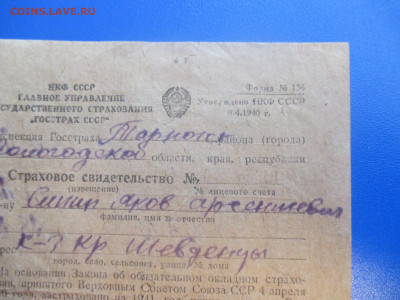 COINS.LAVE.RU
НКФ СССР
ГЛАВНОЕ УПРАВЛЕНИЕ
СУДАРСТВЕННОГО СТРАХОВАНИЯ
„ГОССТРАХ СССР“
Форма № 154
Утверждено НКФ СССР
9.4.1940 г.
спекция Госстраха района (города)
ологодской области, края, республики
Страховое свидетельство №
(извещение) № лицевого счета
ну Яков Арсентьевич
фамилия, имя и отчество
рес к-з Кр. Шевденцы
город, село, сельсовет, улица, № дома
На основании Закона об обязательном окладном страхо-
ии, принятого Верховным Советом Союза ССР 4 апреля
0 года, застраховано на 1941 год
COINS.LAVE.RU